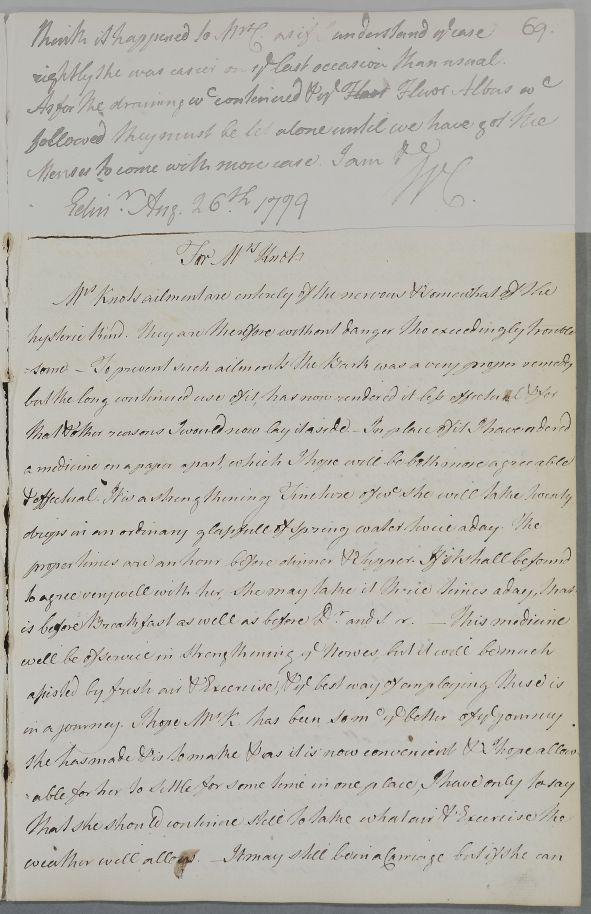 think it happened to Mrs C. as if I understand yr case 69.
rightly she was easier on ye last occasion than usual.
As for the draining wc continued & ye Fluor Albus wc
followed they must be let alone until we have got the
Menses to come with more ease. I am &c
WC.
Edinr. Aug. 26th 1779
For Mrs Knot
Mrs Knots ailment are entirely of the nervous & somewhat of the
hysteric kind. They are therefore without danger tho exceedingly trouble
-some – To prevent such ailments the Bark was a very proper remedy
but the long continued use of it, has now rendered it less effectual & for
that & other reasons I would now lay it aside – In place of it I have ordered
a medicine on a paper apart, which I hope will be both more agreeable
& effectual. It is a strengthening Tincture of wc she will take twenty
drops in an ordinary glassfull of spring water twice a day. The
proper times are an hour before dinner & supper. If it shall be found
to agree very well with her, she may take it thrice times a day, that
is before Breakfast as well as before Dr. and Sr. — This medicine
will be of service in strengthening ye Nerves, but it will be much
assisted by fresh air & Exercise, & ye best way of employing these is
in a journey. I hope Mrs K. has been ye better of ye journey
she has made & is to make & as it is now convenient & I hope allow
-able for her to settle for some time in one place, I have only to say
that she should continue still to take what air & Exercise the
weather will allow. — It may still be in a Carriage but if she can